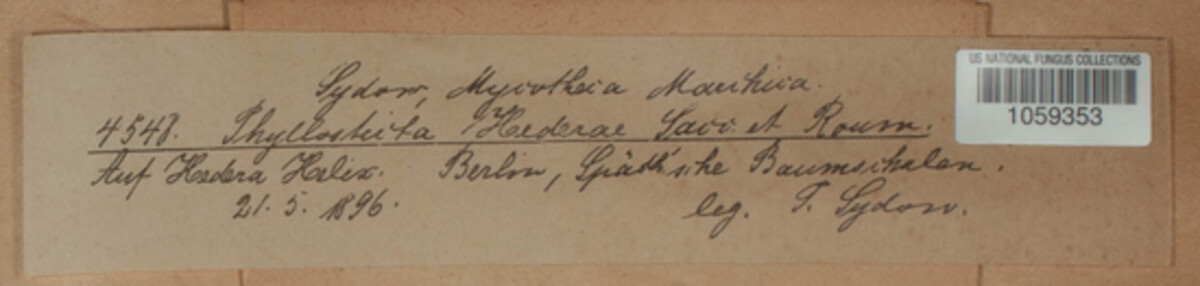 Sydow, Mycotheca Marchica.
US NATIONAL FUNGUS COLLECTIONS
1059353
4548. Phyllosticta Hederae Sacc. et Roum.
Auf Hedera Helix. Berlin, Späth'sche Baumschulen.
21. 5. 1896. leg. P. Sydow.